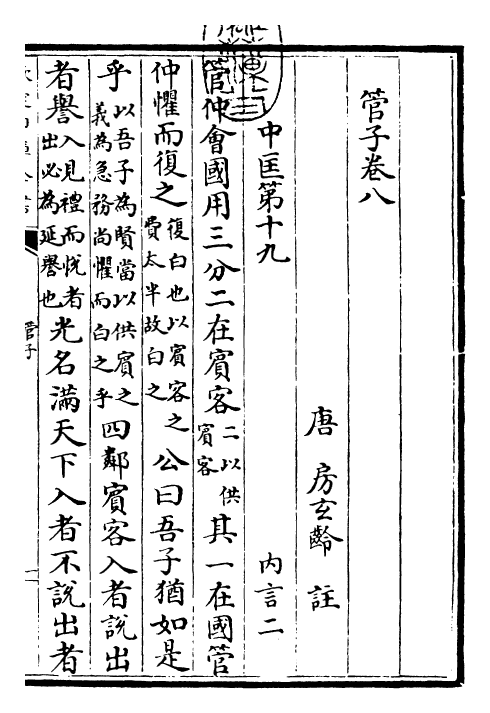 管子卷八
唐 房玄齡 註
中匡第十九 內言二
管仲會國用三分二在賓客二以供賓客其一在國管
仲懼而復之復白也以賓客之費太半故白之公曰吾子猶如是
乎以吾子為賢當以供賓之義為急務尚懼而白之乎四鄰賓客入者說出
者譽入見禮而悅者出必為延譽也光名滿天下入者不說出者
管子